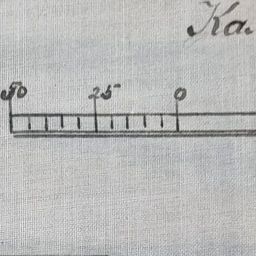 Ka.
50 25 0